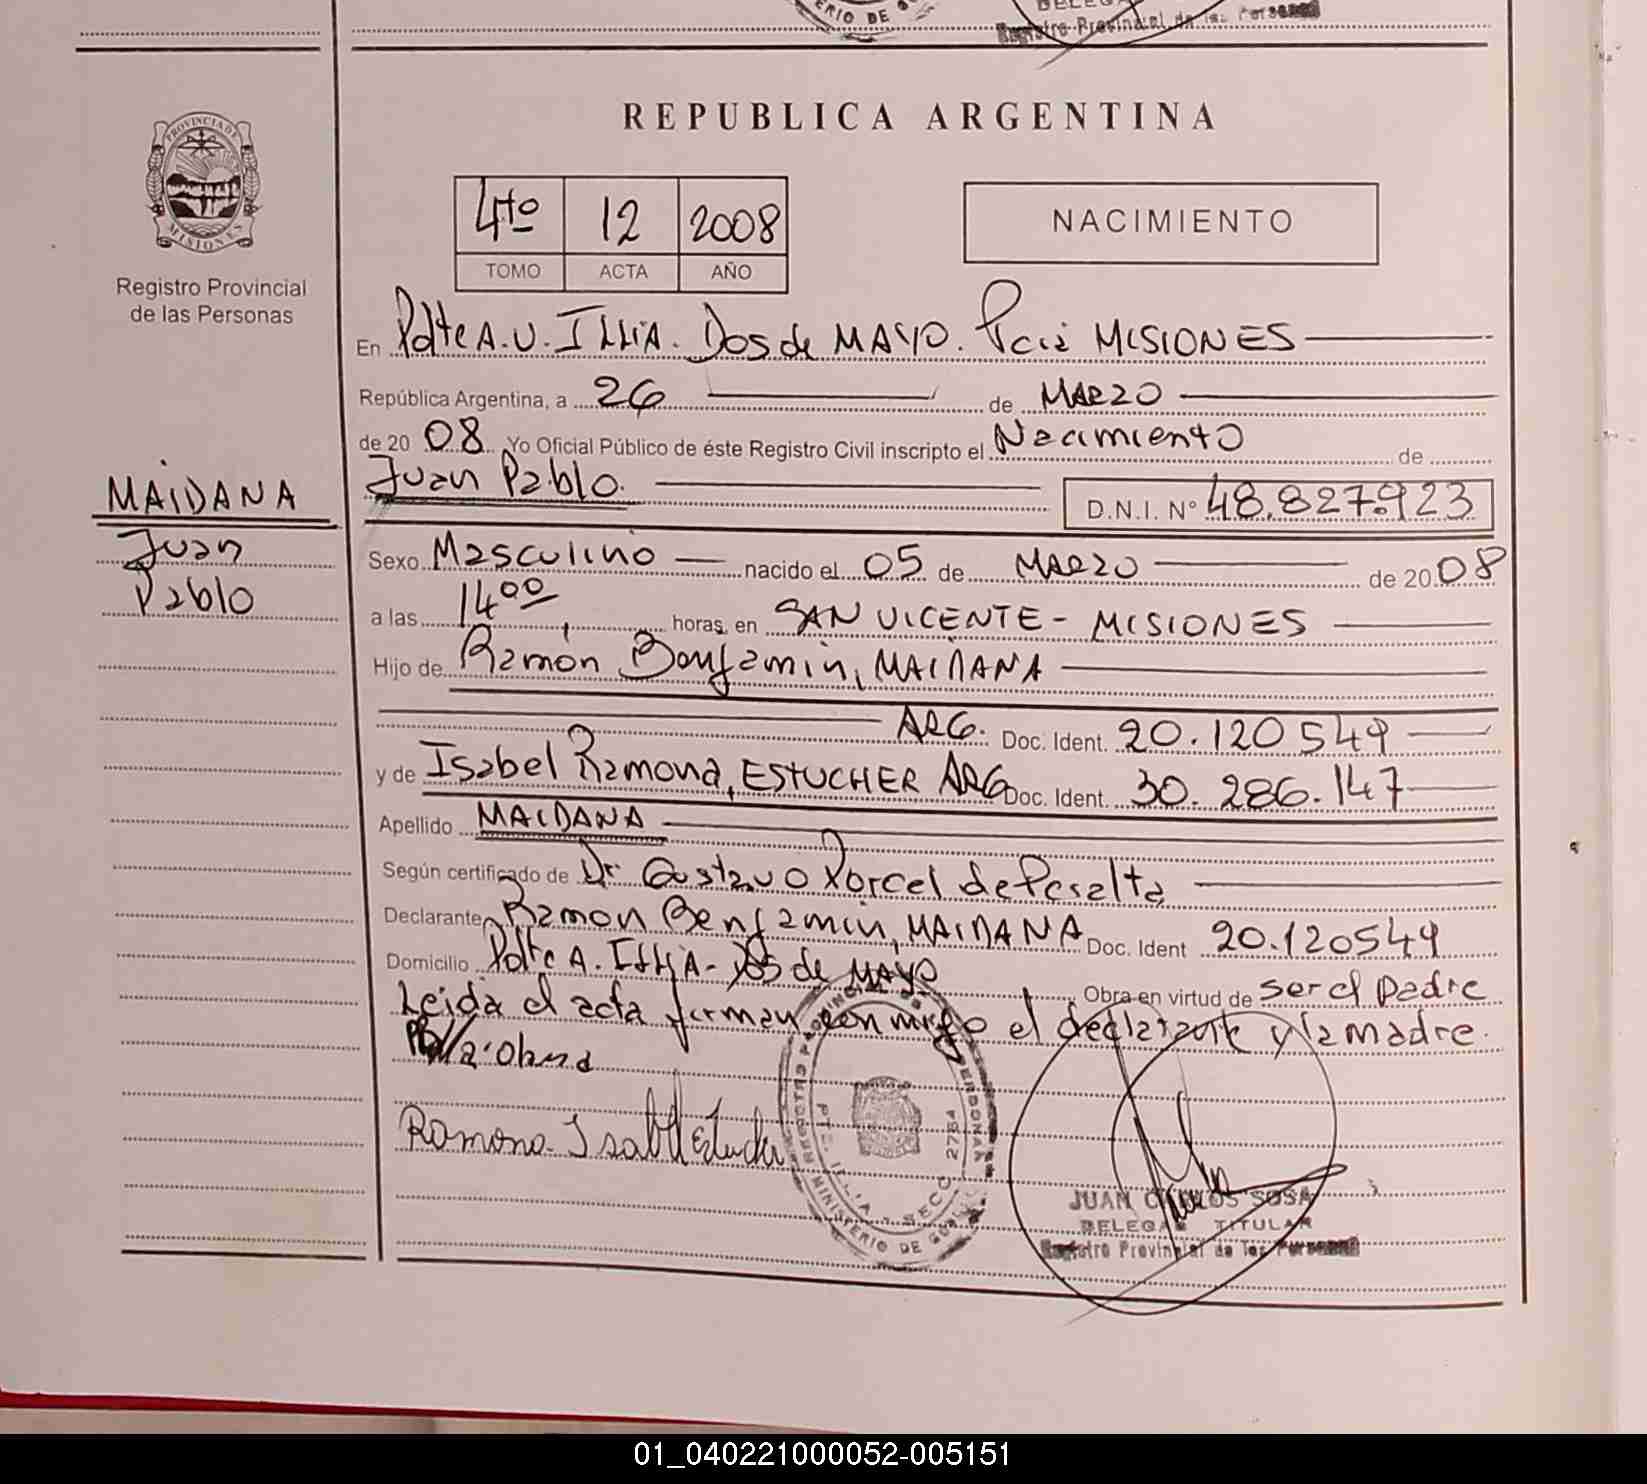 Registro Provincial de las Personas
REPUBLICA ARGENTINA
PROVINCIA DE
MISIONES
Registro Provincial
de las Personas
4to 12 2008
TOMO ACTA AÑO
NACIMIENTO
En Pdte A.U. ILLIA. Dos de MAYO. Pcia MISIONES
República Argentina, a 26 de MARZO
de 20 08 Yo Oficial Público de éste Registro Civil inscripto el Nacimiento de
Juan Pablo. D.N.I. Nº 48.827.923
MAIDANA
Juan
Pablo
Sexo Masculino nacido el 05 de MARZO de 20 08
a las 14 00 horas, en SAN VICENTE - MISIONES
Hijo de Ramón Benjamin, MAIDANA
ARG. Doc. Ident. 20.120549
y de Isabel Ramona, ESTUCHER ARG Doc. Ident. 30.286.147
Apellido MAIDANA
Según certificado de Dr Gustavo Porcel de Peralta
Declarante Ramon Benjamin, MAIDANA Doc. Ident 20.120549
Domicilio Pdte A. ILLIA - Dos de MAYO Obra en virtud de ser el padre
Leida el acta firman conmigo el declarante y la madre.
Ramona Isabel Estucher
REGISTRO PROVINCIAL DE PERSONAS
PTE. ILLIA - SECC 2784
MINISTERIO DE GOB
JUAN CARLOS SOSA
DELEGADO TITULAR
Registro Provincial de las Personas
01_040221000052-005151